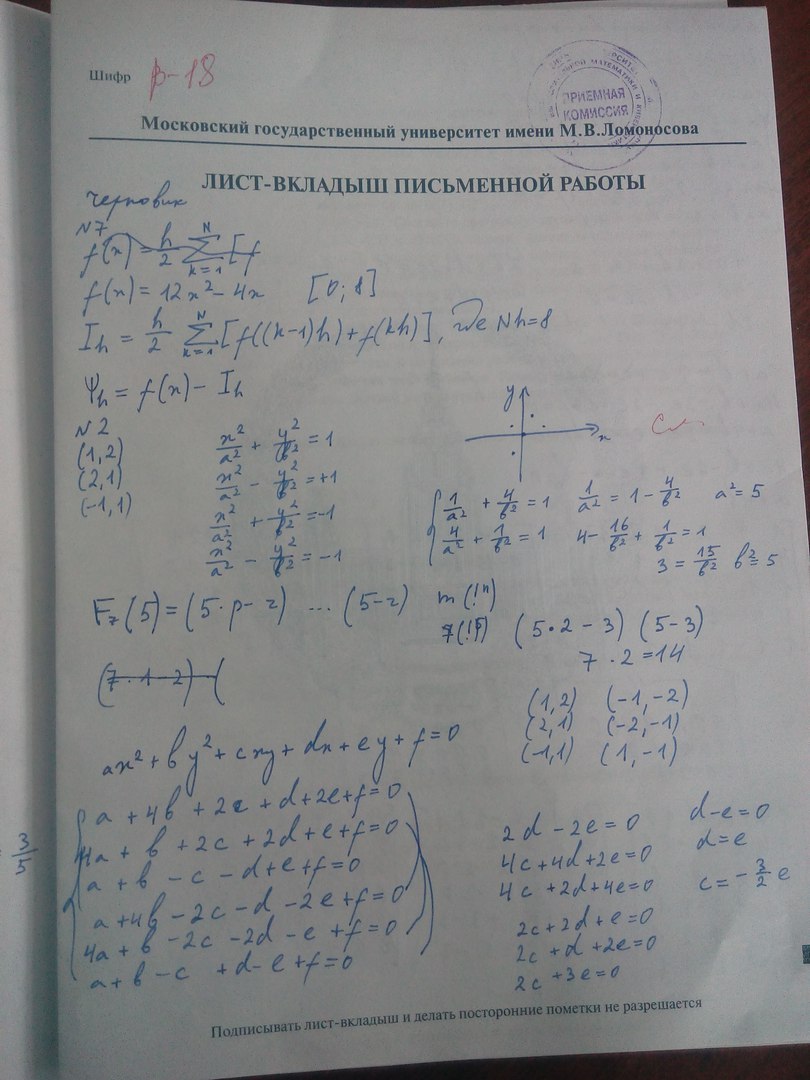 Шифр β-18
ПРИЕМНАЯ
КОМИССИЯ
Московский государственный университет имени М.В.Ломоносова
ЛИСТ-ВКЛАДЫШ ПИСЬМЕННОЙ РАБОТЫ
черновик
N7
f(x) = h/2 ∑_{k=1}^{N} [f
f(x) = 12x² - 4x [0; 8]
I_h = h/2 ∑_{k=1}^{N} [f((k-1)h) + f(kh)], где Nh=8
Ψ_h = f(x) - I_h
y
x
N2
(1,2)
(2,1)
(-1,1)
x²/a² + y²/b² = 1
x²/a² - y²/b² = +1
x²/a² + y²/b² = -1
x²/a² - y²/b² = -1
1/a² + 4/b² = 1 1/a² = 1 - 4/b² a² = 5
4/a² + 1/b² = 1 4 - 16/b² + 1/b² = 1
3 = 15/b² b² = 5
F₇(5) = (5·p - r) ... (5-r) m(!ⁿ)
7(!⁵) (5·2-3) (5-3)
7·2=14
(7·1-2) (
(1,2) (-1,-2)
(2,1) (-2,-1)
(-1,1) (1,-1)
ax² + by² + cxy + dx + ey + f = 0
a + 4b + 2c + d + 2e + f = 0
4a + b + 2c + 2d + e + f = 0
a + b - c - d + e + f = 0
a + 4b - 2c - d - 2e + f = 0
4a + b - 2c - 2d - e + f = 0
a + b - c + d - e + f = 0
2d - 2e = 0 d - e = 0
4c + 4d + 2e = 0 d = e
4c + 2d + 4e = 0 c = -3/2 e
2c + 2d + e = 0
2c + d + 2e = 0
2c + 3e = 0
3/5
Подписывать лист-вкладыш и делать посторонние пометки не разрешается